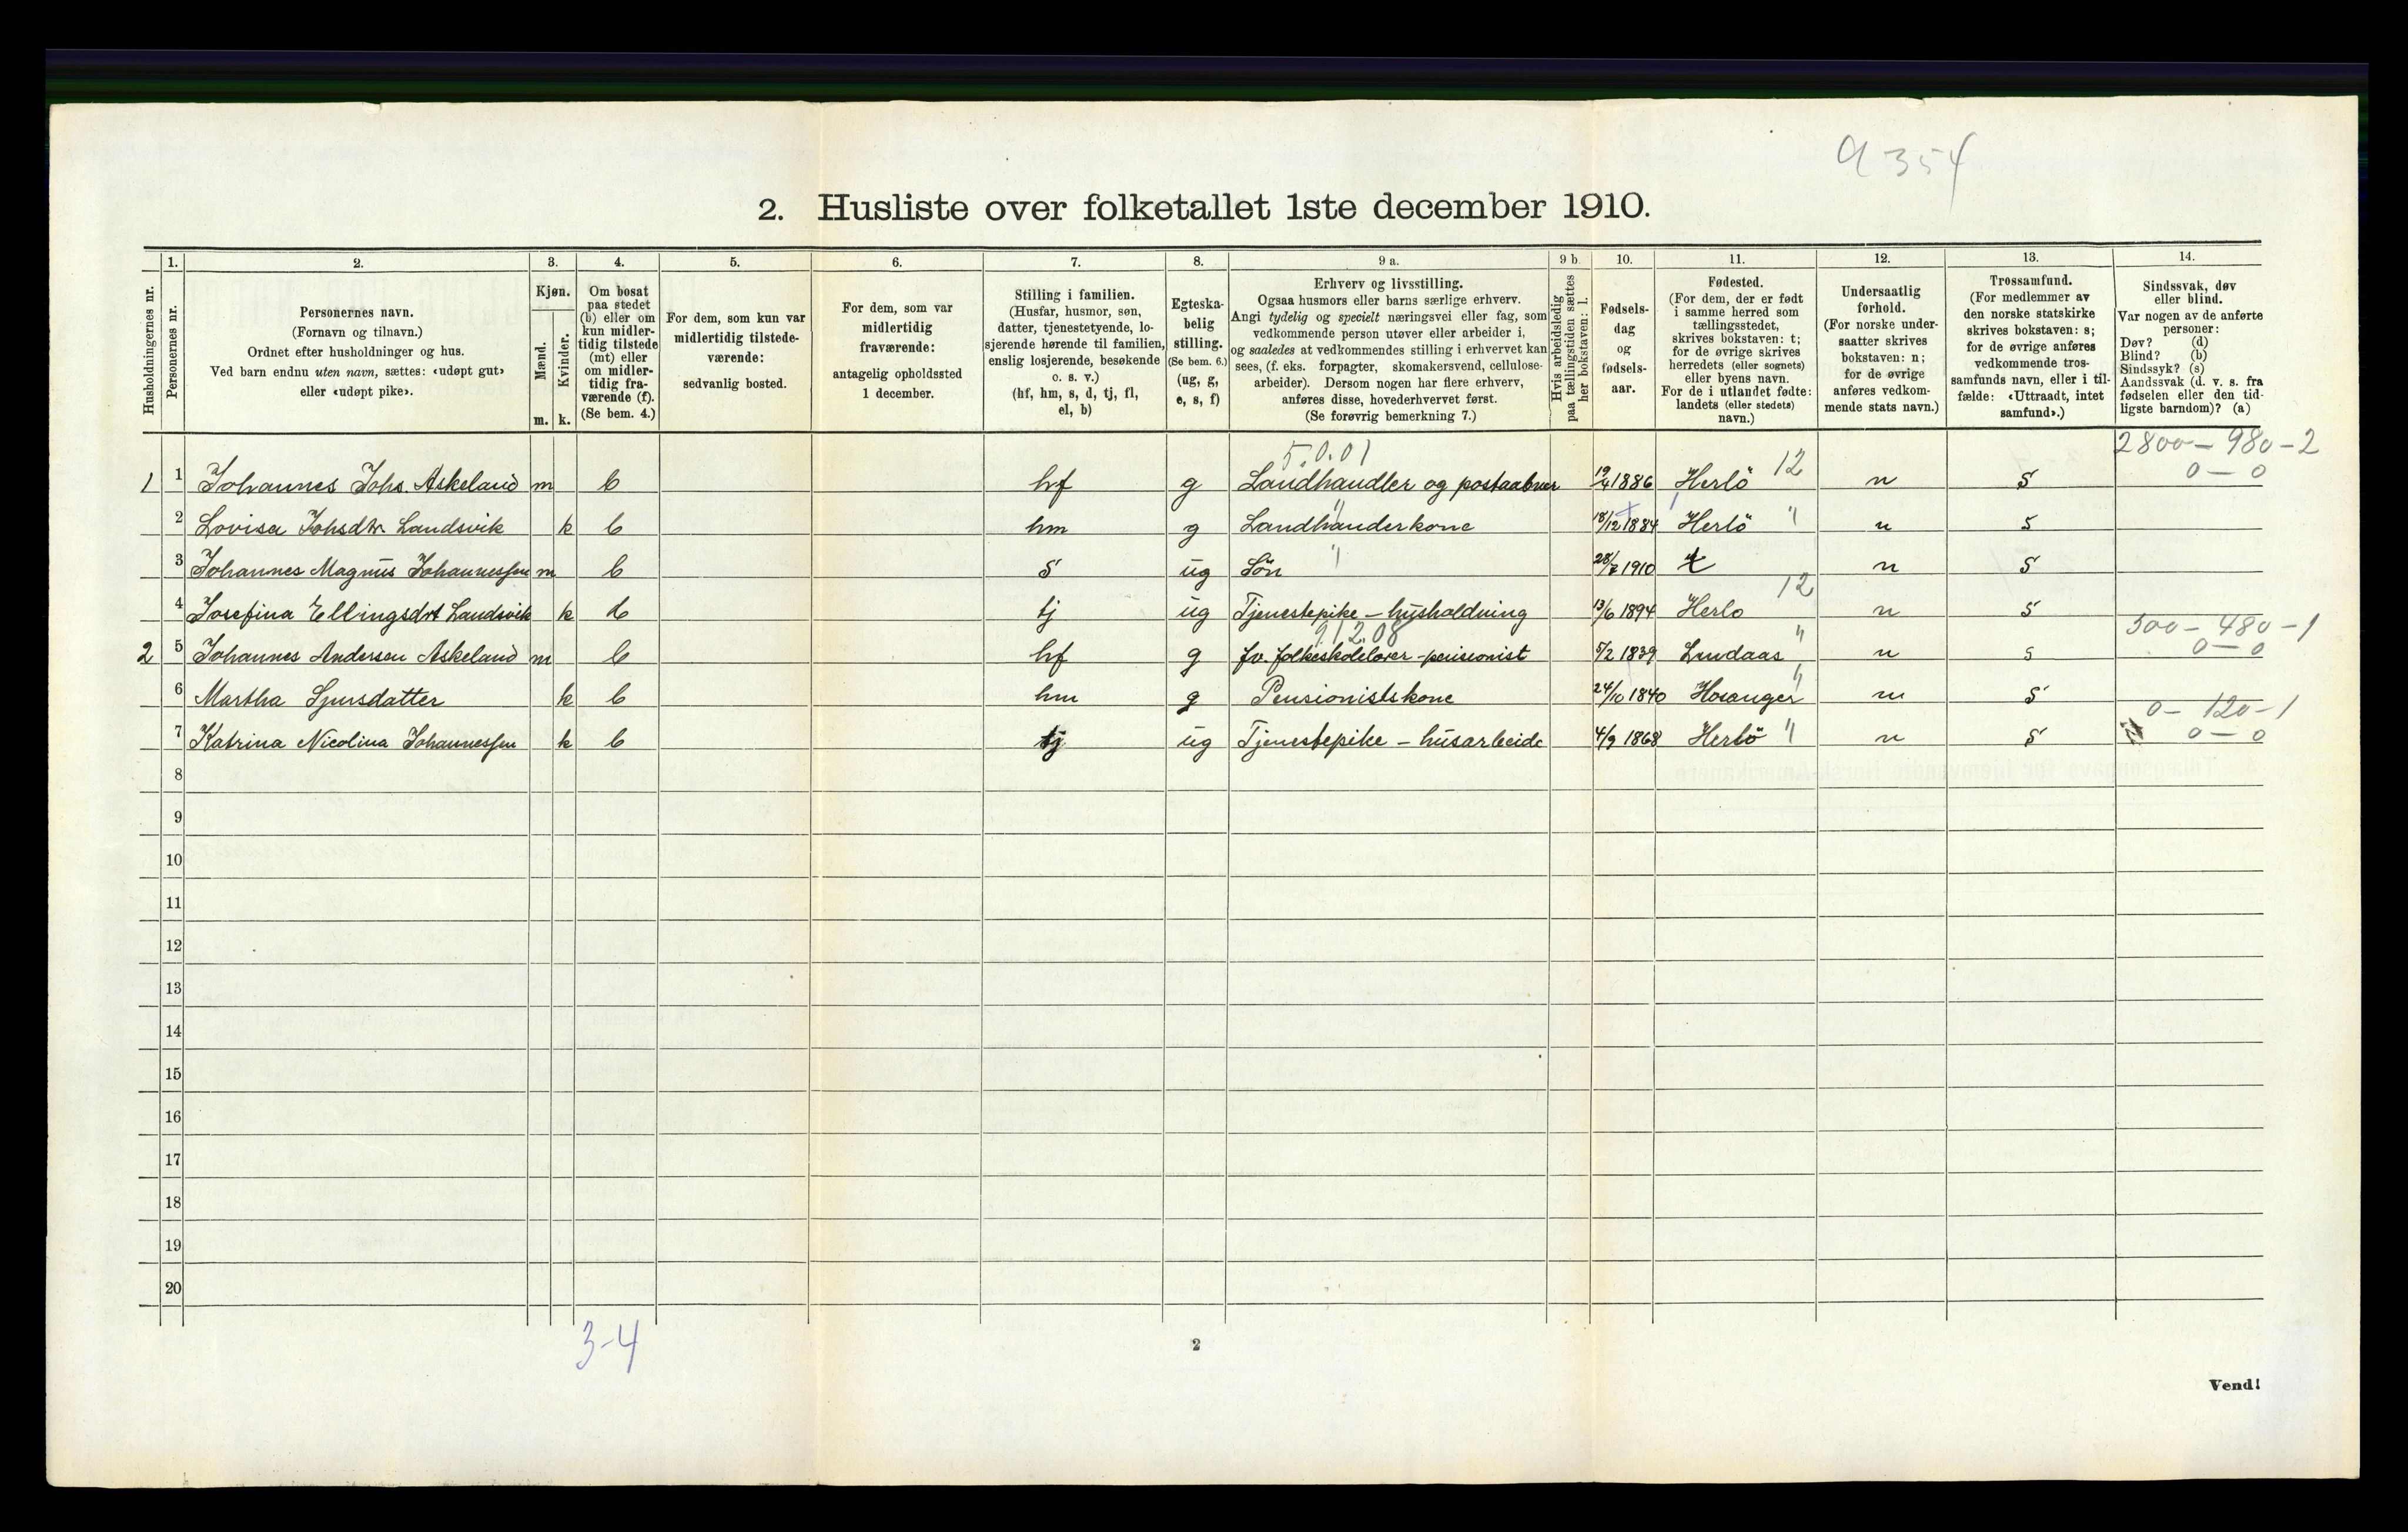 9354
2. Husliste over folketallet 1ste december 1910.
Husholdningernes nr.
1. Personernes nr.
2. Personernes navn. (Fornavn og tilnavn.) Ordnet efter husholdninger og hus. Ved barn endnu uten navn, sættes: «udøpt gut» eller «udøpt pike».
3. Kjøn. Mænd. m. Kvinder. k.
4. Om bosat paa stedet (b) eller om kun midlertidig tilstede (mt) eller om midlertidig fraværende (f). (Se bem. 4.)
5. For dem, som kun var midlertidig tilstedeværende: sedvanlig bosted.
6. For dem, som var midlertidig fraværende: antagelig opholdssted 1 december.
7. Stilling i familien. (Husfar, husmor, søn, datter, tjenestetyende, losjerende hørende til familien, enslig losjerende, besøkende o. s. v.) (hf, hm, s, d, tj, fl, el, b)
8. Egteskabelig stilling. (Se bem. 6.) (ug, g, e, s, f)
9 a. Erhverv og livsstilling. Ogsaa husmors eller barns særlige erhverv. Angi tydelig og specielt næringsvei eller fag, som vedkommende person utøver eller arbeider i, og saaledes at vedkommendes stilling i erhvervet kan sees, (f. eks. forpagter, skomakersvend, cellulosearbeider). Dersom nogen har flere erhverv, anføres disse, hovederhvervet først. (Se forøvrig bemerkning 7.)
9 b. Hvis arbeidsledig paa tællingstiden sættes her bokstaven: l.
10. Fødselsdag og fødselsaar.
11. Fødested. (For dem, der er født i samme herred som tællingsstedet, skrives bokstaven: t; for de øvrige skrives herredets (eller sognets) eller byens navn. For de i utlandet fødte: landets (eller stedets) navn.)
12. Undersaatlig forhold. (For norske undersaatter skrives bokstaven: n; for de øvrige anføres vedkommende stats navn.)
13. Trossamfund. (For medlemmer av den norske statskirke skrives bokstaven: s; for de øvrige anføres vedkommende trossamfunds navn, eller i tilfælde: «Uttraadt, intet samfund».)
14. Sindssvak, døv eller blind. Var nogen av de anførte personer: Døv? (d) Blind? (b) Sindssyk? (s) Aandssvak (d. v. s. fra fødselen eller den tidligste barndom)? (a)
5.0.01 2800 – 980 – 2
1 1 Johannes Johs. Askeland m b hf g Landhandler og postaabner 19/4 1886 Herlö 12 n s 0 – 0
2 Lovisa Johsdtr. Landsvik k b hm g Landhanderkone " 18/12 1884 Herlö " n s
3 Johannes Magnus Johannessen m b s ug Sön " 28/7 1910 t n s
4 Josefina Ellingsdtr Landsvik k b tj ug Tjenestepike – husholdning 13/6 1894 Herlo 12 n s
912.08 500 – 480 – 1
2 5 Johannes Andersen Askeland m b hf g fv. folkeskolelærer – pensionist 5/2 1839 Lindaas " n s 0 – 0
6 Martha Sjursdatter k b hm g Pensionistskone 24/10 1840 Hosanger " n s
0 – 120 – 1
7 Katrina Nicolina Johannessen k b tj ug Tjenestepike – husarbeide 4/9 1868 Herlö " n s 0 – 0
8
9
10
11
12
13
14
15
16
17
18
19
20
3-4
2
Vend!